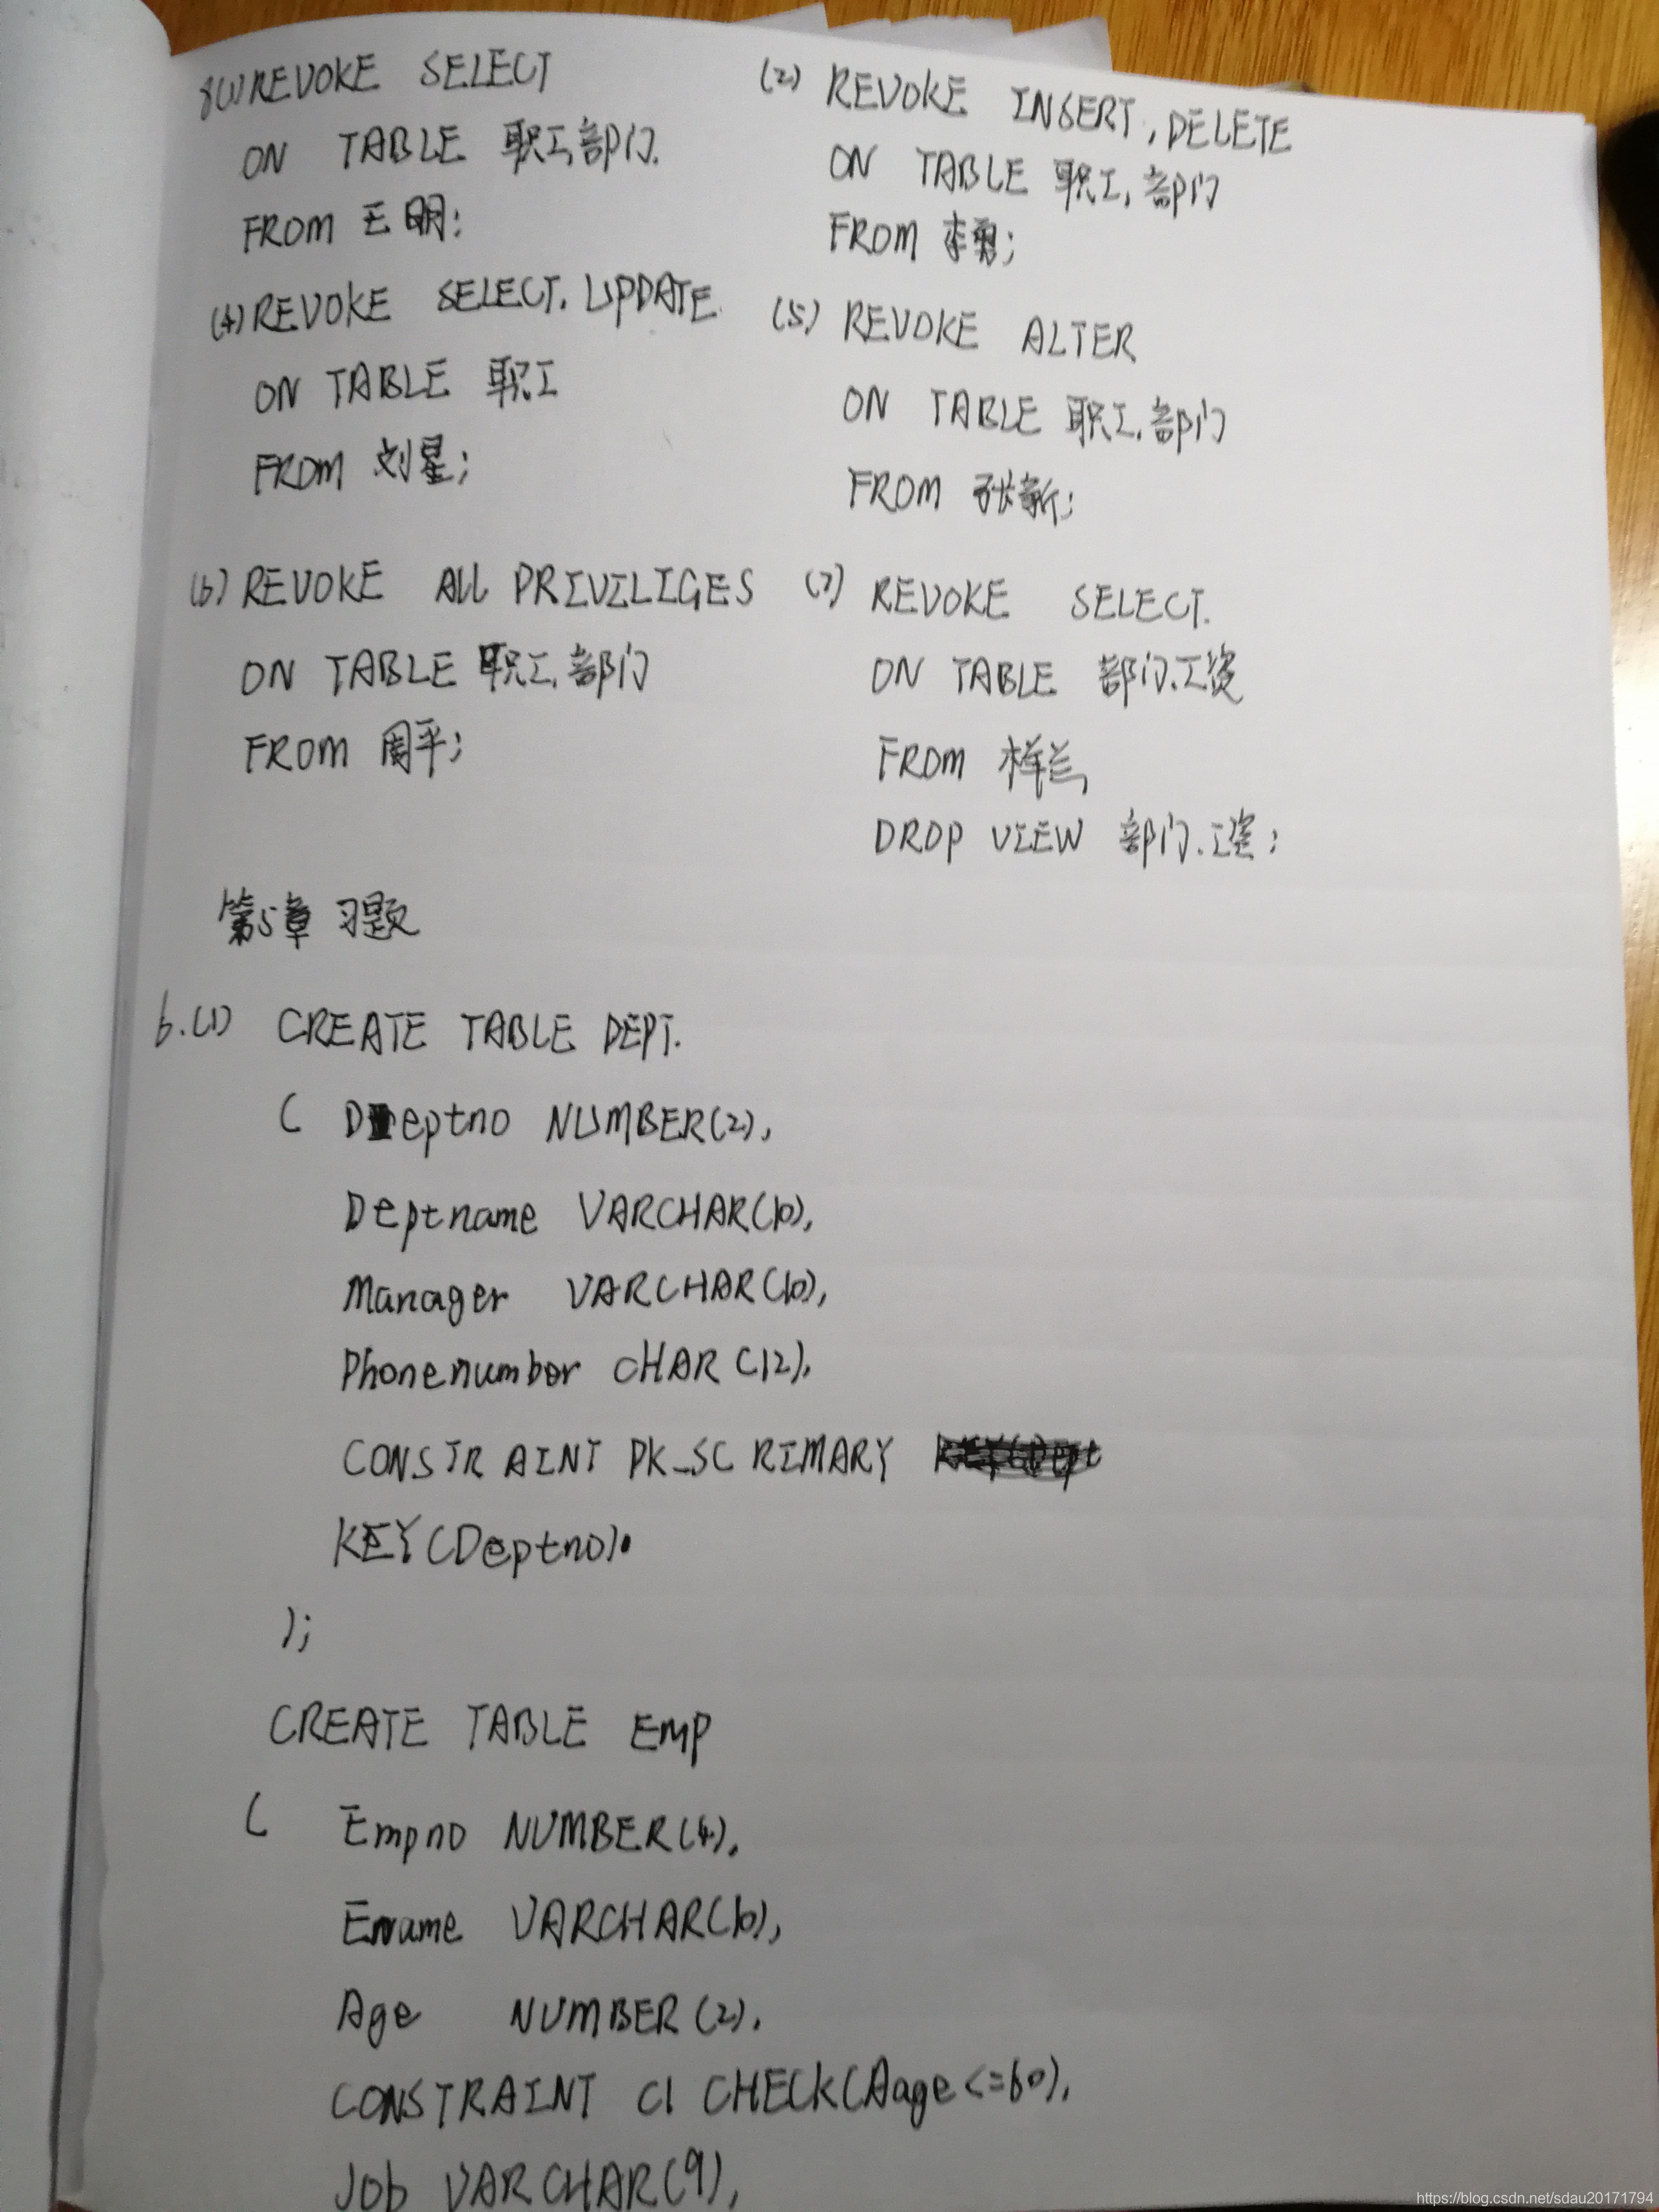 8(1) REVOKE SELECT
ON TABLE 职工,部门.
FROM 王明;
(2) REVOKE INSERT, DELETE
ON TABLE 职工,部门
FROM 李勇;
(4) REVOKE SELECT. UPDATE
ON TABLE 职工
FROM 刘星;
(5) REVOKE ALTER
ON TABLE 职工,部门
FROM 张新;
(6) REVOKE ALL PRIVILIGES
ON TABLE 职工,部门
FROM 周平;
(7) REVOKE SELECT.
ON TABLE 部门.工资
FROM 兰,
DROP VIEW 部门.工资;
第5章 习题
6.(1) CREATE TABLE DEPT.
( Deptno NUMBER(2),
Deptname VARCHAR(10),
Manager VARCHAR(10),
Phonenumber CHAR(12),
CONSTRAINT PK_SC RIMARY
KEY(Deptno)
);
CREATE TABLE EMP
( Empno NUMBER(4),
Ename VARCHAR(10),
Age NUMBER(2),
CONSTRAINT C1 CHECK(Aage<=60),
Job VARCHAR(9),
https://blog.csdn.net/sdau20171794